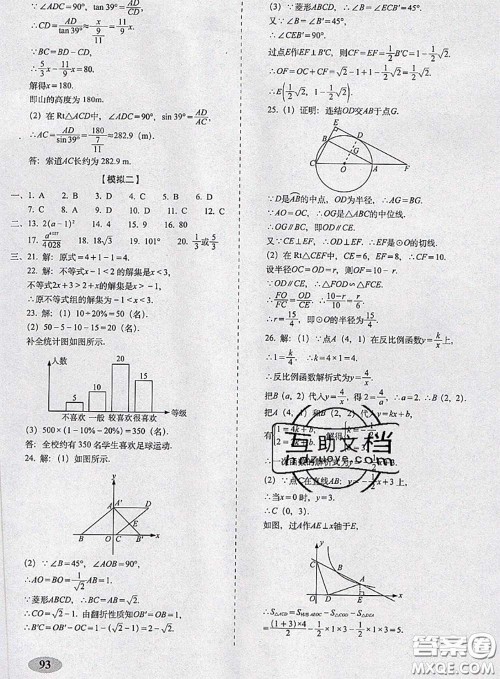 ∵∠ADC=90°, tan39°=AD/CD,
∴CD=AD/tan39°=x/(9/11)=11/9 x.
∵BC=BD-CD,
∴5/3x-11/9x=80.
解得x=180.
即山的高度为180m.
(2) 在Rt△ACD中, ∠ADC=90°, sin39°=AD/AC,
∴AC=AD/sin39°=180/(7/11)≈282.9(m).
答: 索道AC长约为282.9 m.
【模拟二】
一、1. A 2. D 3. B 4. A 5. B 6. D
7. C 8. C 9. C 10. B 11. B 12. C
二、13. 2(a-1)² 14. 4 15. 9 16. 80
17. 18. 18√3 19. 101° 20. 1/3或5/3
三、21. 解: 原式=4+1-1=4.
22. 解: 不等式
不等式2x+3>
∴原不等式组的解集为-1<x<3.
23. 解: (1) 10÷20%=50(名).
(2) 50-5-10-15=20(名).
补全统计图如图所示.
人数
20
15
10
5
不喜欢 一般 较喜欢 很喜欢 等级
(3) 500×(1-10%-20%)=350(名).
答: 全校约有350名学生喜欢足球运动.
24. 解: (1) 如图所示.
A A' D
E
B O C B'
(2) ∵∠B=45°, ∠AOB=90°,
∴AO=BO=1/√2 AB=1.
∵菱形ABCD, ∴BC=AB=√2.
∴CO=√2-1. 由翻折性质知OB'=OB=1.
∴CB'=OB'-OC=1-(√2-1)=2-√2.
93
(3) ∵菱形ABCD, ∴∠B=∠ECB'=45°.
又∵∠B=∠B'=45°,
∴∠CEB'=90°.
过点E作EF⊥BC于F, 则CF=EF=1/2CB'=1-1/2√2.
∴OF=OC+CF=√2-1+1-1/2√2=1/2√2.
∴E(1/2√2, 1-1/2√2).
25. (1) 证明: 连结OD交AB于点G.
E
B D
G
C O A F
∵D是AB的中点, OD为半径, ∴AG=BG.
∵AO=OC, ∴OG是△ABC的中位线.
∴OG∥BC, 即OD∥CE.
又∵CE⊥EF, ∴OD⊥EF. ∴EF是⊙O的切线.
(2) 在Rt△CEF中, CE=6, EF=8, ∴CF=10.
设半径OC=OD=r, 则OF=10-r.
∵OD∥CE, ∴△FOD∽△FCE.
∴FO/FC=OD/CE. ∴(10-r)/10=r/6.
∴r=15/4, 即⊙O的半径为15/4.
26. 解: (1) ∵点A(4, 1)在反比例函数y=k/x上,
∴1=k/4. ∴k=4.
∴反比例函数解析式为y=4/x.
把B(a, 2)代入y=4/x, 得2=4/a. ∴a=2. ∴B(2, 2).
把A(4, 1)和B(2, 2)代入y=kx+b,
互助文档
(2) ∵点C在直线AB: y=-1/2x+3上,
∴当x=0时, y=3.
∴C(0, 3).
如图, 过A作AE⊥x轴于E,
y
C
B
A
O D E x
1/2×1×3-1/2×1×3=5.
答案圈